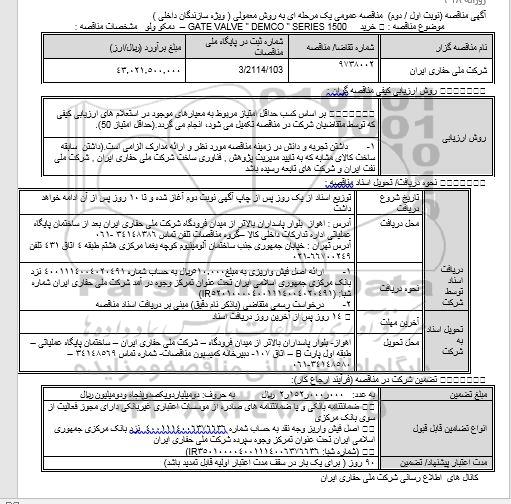 آگهی مناقصه (نوبت اول / دوم) مناقصه عمومی یک مرحله ای به روش معمولی ( ویژه سازندگان داخلی )
موضوع مناقصه : خرید GATE VALVE " DEMCO " SERIES 1500 – دمکو ولو مشخصات مناقصه :
نام مناقصه گزار
شماره تقاضا/ مناقصه
شماره ثبت در پایگاه ملی مناقصات
مبلغ برآورد (ریال/ارز)
شرکت ملی حفاری ایران
۹۷۳۸۰۰۲
3/2114/103
۴۳,۰۲۱,۵۰۰,۰۰۰
روش ارزیابی کیفی مناقصه گران:
روش ارزیابی
بر اساس کسب حداقل امتیاز مربوط به معیارهای موجود در استعلام های ارزیابی کیفی
که توسط متقاضیان شرکت در مناقصه تکمیل می شود، انجام می گردد.(حداقل امتیاز 50).
۱- داشتن تجربه و دانش در زمینه مناقصه مورد نظر و ارائه مدارک الزامی است.(داشتن سابقه
ساخت کالای مشابه که به تایید مدیریت پژوهش , فناوری ساخت شرکت ملی حفاری ایران , شرکت ملی
نفت ایران و شرکت های تابعه رسیده باشد
نحوه دریافت/ تحویل اسناد مناقصه :
دریافت اسناد توسط شرکت
تاریخ شروع دریافت
توزیع اسناد از یک روز پس از چاپ آگهی نوبت دوم آغاز شده و تا ۱۰ روز پس از آن ادامه خواهد داشت
محل دریافت
آدرس : اهواز بلوار پاسداران بالاتر از میدان فرودگاه شرکت ملی حفاری ایران بعد از ساختمان پایگاه
عملیاتی اداره تدارکات داخلی کالا –گروه مناقصات تلفن تماس ۳۴۱۴۸۳۸۶-۰۶۱
آدرس تهران : خیابان جمهوری جنب ساختمان آلومینیوم کوچه یغما مرکزی هشتم طبقه ۴ اتاق ۴۳۱ تلفن
۰۲۱-۶۶۷۰۰۲۴۹
نحوه دریافت
۱- ارائه اصل فیش واریزی به مبلغ ریال به حساب شماره ۴۰۰۱۱۱۴۰۰۴۰۲۰۴۹۱ نزد
بانک مرکزی جمهوری اسلامی ایران تحت عنوان تمرکز وجوه در آمد شرکت ملی حفاری ایران شماره
شبا:
۲- درخواست رسمی متقاضی (باذکر نام دقیق) مبنی بر دریافت اسناد مناقصه
تحویل اسناد به شرکت
آخرین مهلت
۱۴ روز پس از آخرین روز دریافت اسناد
محل تحویل
اهواز- بلوار پاسداران بالاتر از میدان فرودگاه – شرکت ملی حفاری ایران – ساختمان پایگاه عملیاتی –
طبقه اول پارت B – اتاق ۱۰۷- دبیرخانه کمیسیون مناقصات- شماره تماس ۳۴۱۴۸۵۶۹ –
۰۶۱-۳۴۱۴۸۵۸۰
تضمین شرکت در مناقصه (فرآیند ارجاع کار):
مبلغ تضمین
به عدد: ۲,۱۵۲,۰۰۰,۰۰۰ ریال به حروف: دومیلیاردویکصدوپنجاه ودومیلیون ریال
انواع تضامین قابل قبول
ضمانتنامه بانکی و یا ضمانتنامه های صادره از موسسات اعتباری غیربانکی دارای مجوز فعالیت از
سوی بانک مرکزی
اصل فیش واریز وجه نقد به حساب شماره نزد بانک مرکزی جمهوری
اسلامی ایران تحت عنوان تمرکز وجوه سپرده شرکت ملی حفاری ایران
(شماره شبا:
مدت اعتبار پیشنهاد/ تضمین
۹۰ روز ( برای یک بار در سقف مدت اعتبار اولیه قابل تمدید باشد)
کانال های اطلاع رسانی شرکت ملی حفاری ایران